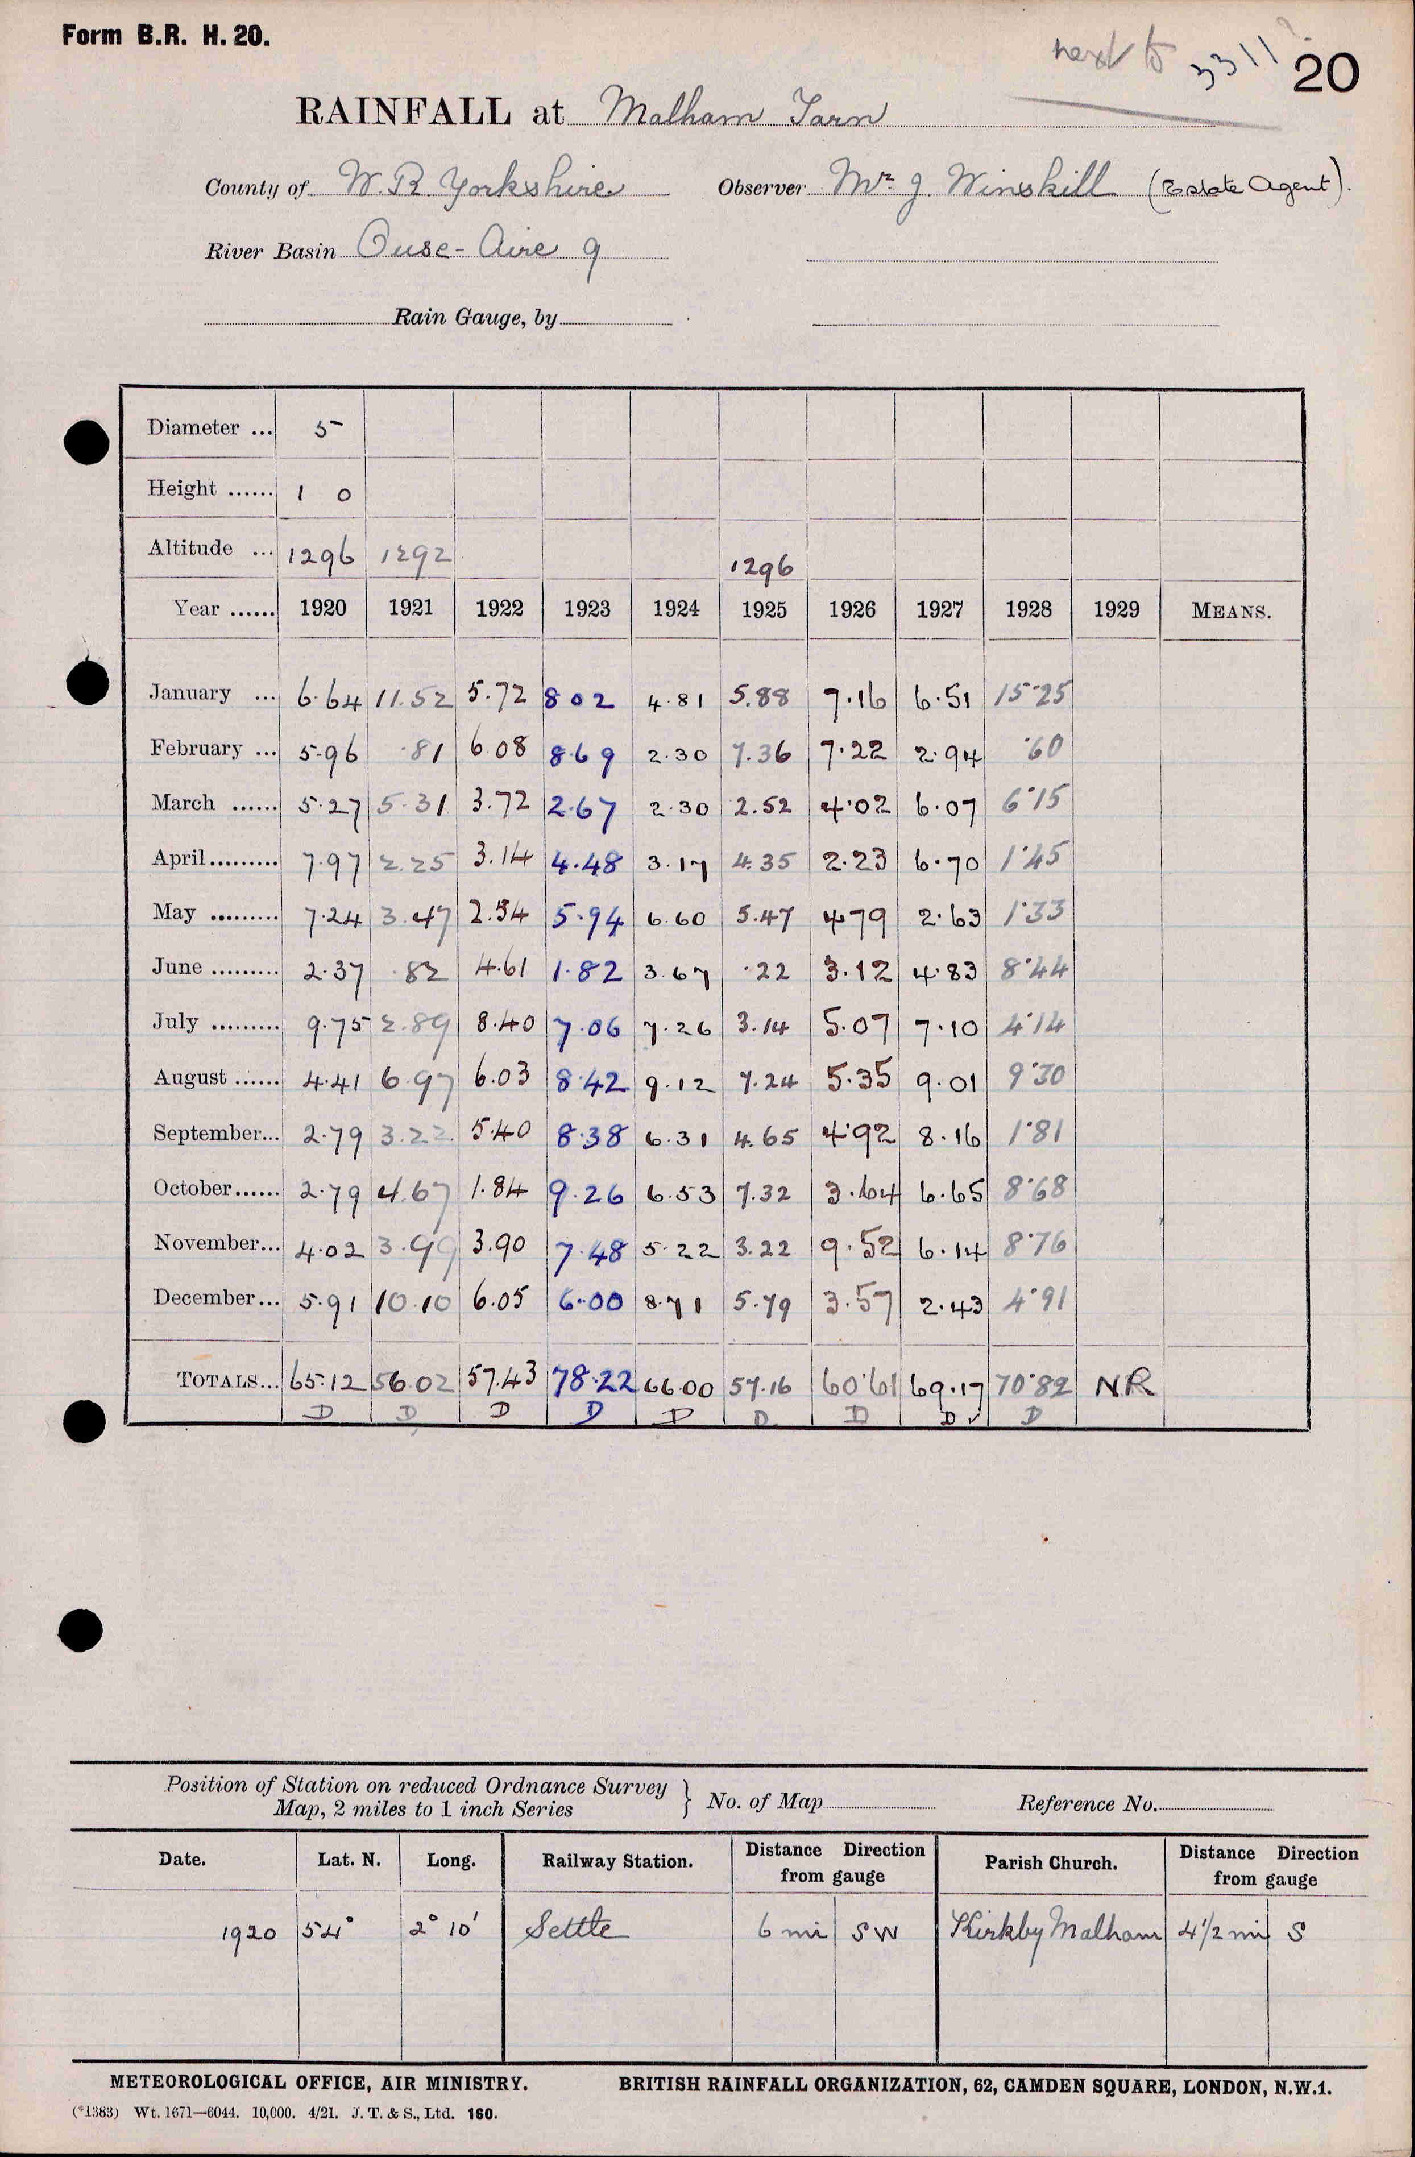 Form B.R. H. 20.
next to 3311?
20
RAINFALL at Malham Tarn
County of W. R. Yorkshire Observer Mr. J. Winskill (Estate Agent).
River Basin Ouse - Aire 9
Rain Gauge, by
Diameter ... 5
Height ...... 1 0
Altitude ... 1296 1292 1296
Year ...... 1920 1921 1922 1923 1924 1925 1926 1927 1928 1929 MEANS.
January ... 6.64 11.52 5.72 8 02 4.81 5.88 7.16 6.51 15.25
February ... 5.96 .81 6.08 8.69 2.30 7.36 7.22 2.94 .60
March ...... 5.27 5.31 3.72 2.67 2.30 2.52 4.02 6.07 6.15
April......... 7.97 2.25 3.14 4.48 3.17 4.35 2.23 6.70 1.45
May ......... 7.24 3.47 2.54 5.94 6.60 5.47 4.79 2.63 1.33
June ......... 2.37 .82 4.61 1.82 3.67 .22 3.12 4.83 8.44
July ......... 9.75 2.89 8.40 7.06 7.26 3.14 5.07 7.10 4.14
August ...... 4.41 6.97 6.03 8.42 9.12 7.24 5.35 9.01 9.30
September... 2.79 3.22 5.40 8.38 6.31 4.65 4.92 8.16 1.81
October...... 2.79 4.67 1.84 9.26 6.53 7.32 3.64 6.65 8.68
November... 4.02 3.99 3.90 7.48 5.22 3.22 9.52 6.14 8.76
December... 5.91 10.10 6.05 6.00 8.71 5.79 3.57 2.43 4.91
TOTALS... 65.12 56.02 57.43 78.22 66.00 57.16 60.61 69.17 70.82 NR
D D D D D D D D ✓ D
Position of Station on reduced Ordnance Survey
Map, 2 miles to 1 inch Series } No. of Map Reference No.
Date. Lat. N. Long. Railway Station. Distance Direction from gauge Parish Church. Distance Direction from gauge
1920 54° 2° 10' Settle 6 mi SW Kirkby Malham 4 1/2 mi S
METEOROLOGICAL OFFICE, AIR MINISTRY. BRITISH RAINFALL ORGANIZATION, 62, CAMDEN SQUARE, LONDON, N.W.1.
(*1383) Wt. 1671—6044. 10,000. 4/21. J. T. & S., Ltd. 160.